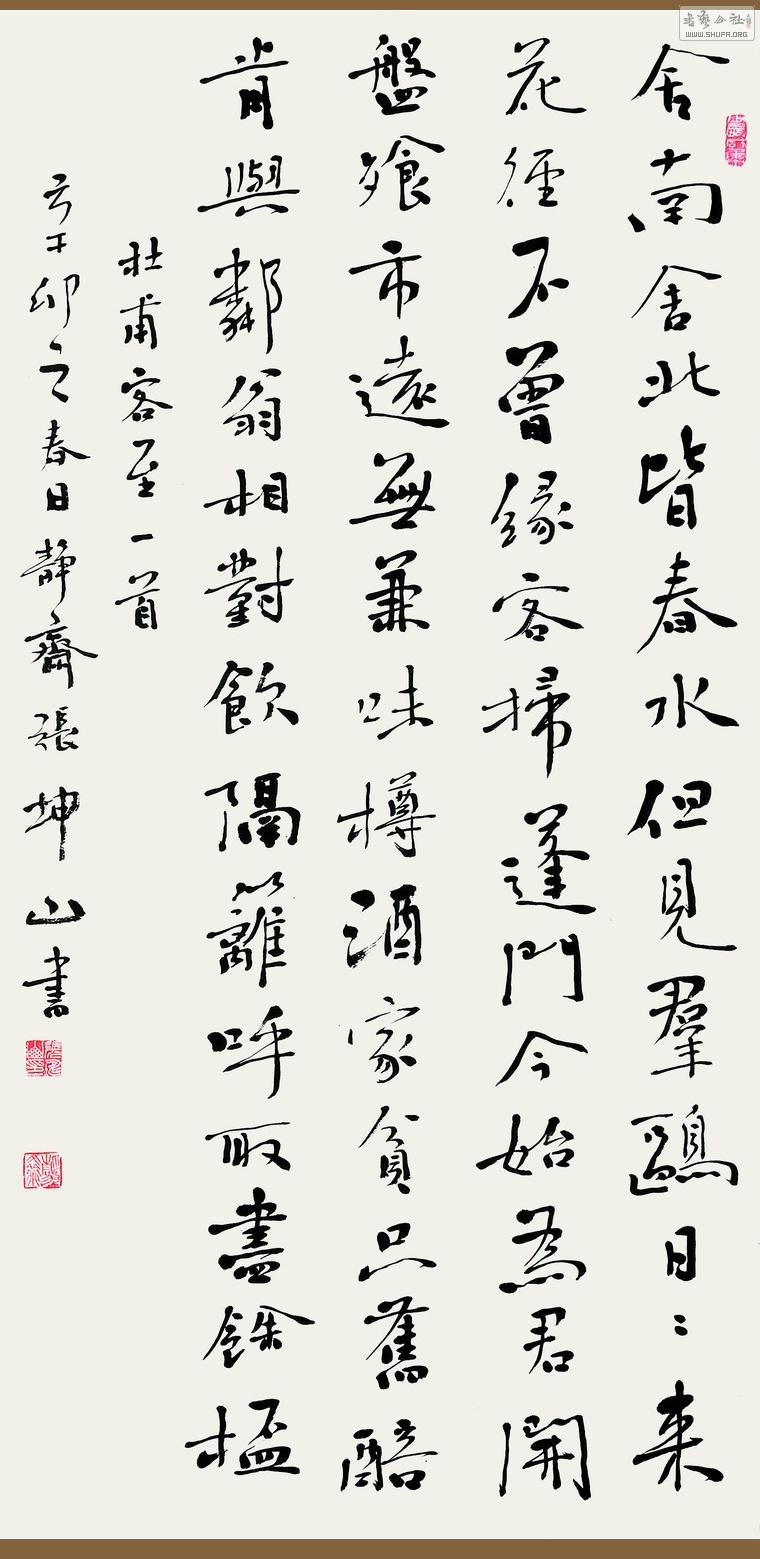 書藝公社
WWW.SHUFA.ORG
舍南舍北皆春水但見羣鷗日〻来
花徑不曾緣客掃蓬門今始為君開
盤飱市遠無兼味樽酒家貧只舊醅
肯與鄰翁相對飲隔籬呼取盡餘杯
杜甫客至一首
辛卯之春日靜齋張坤山書